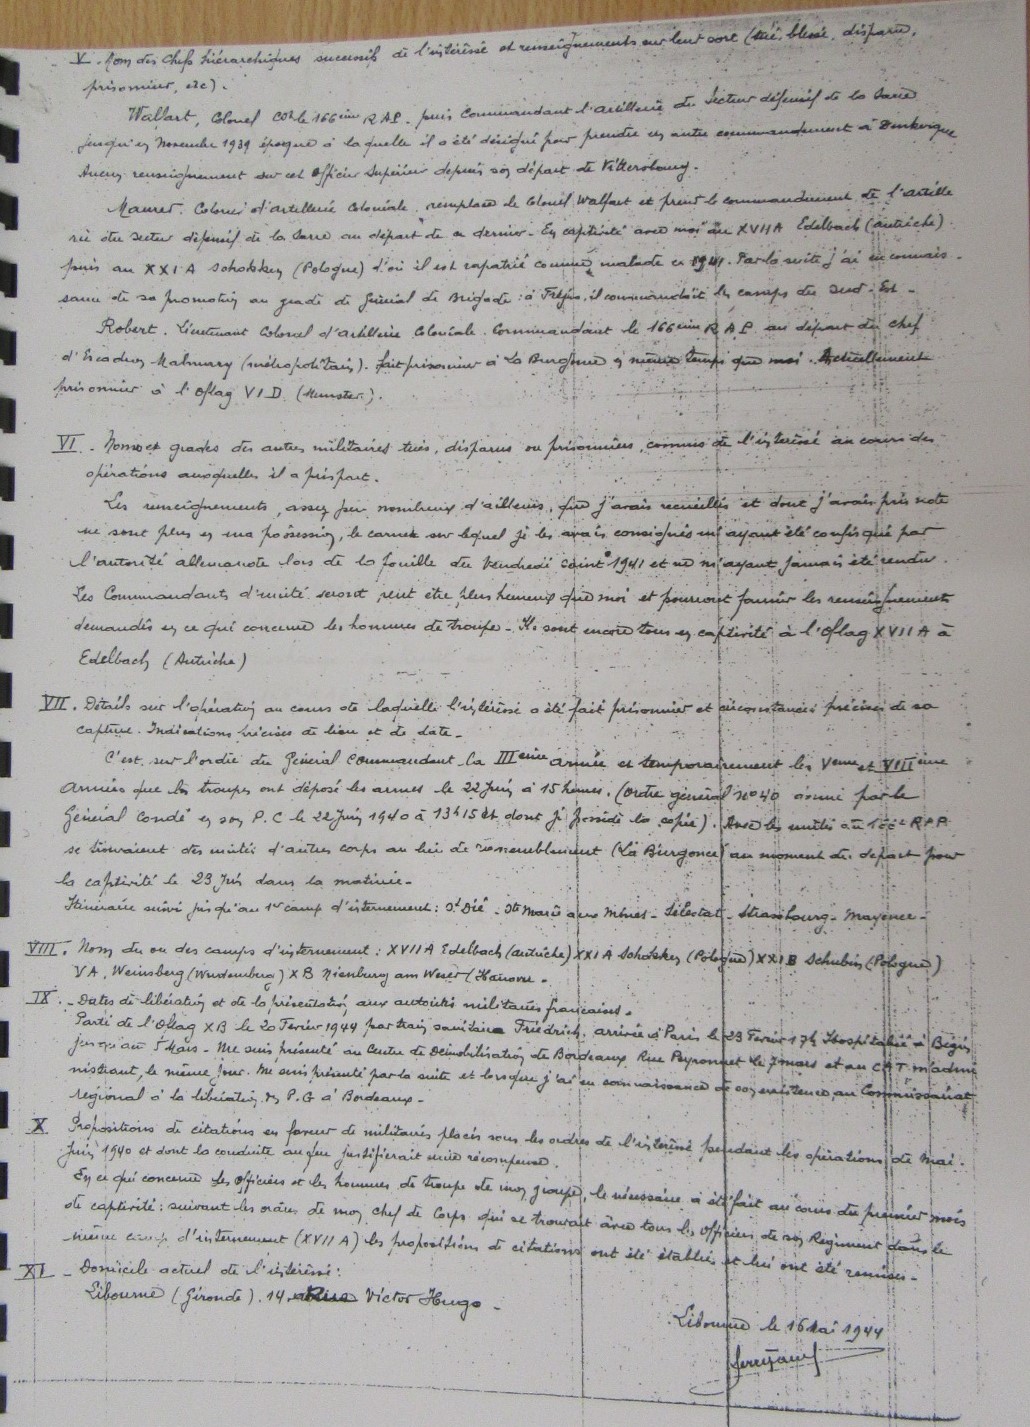 V. Nom des chefs hiérarchiques successifs de l'intéressé et renseignements sur leur sort (tué, blessé, disparu,
prisonnier, etc).
Walfart, Colonel Cdt le 166ème R.A.P. puis Commandant l'artillerie du Secteur défensif de la Sarre
jusqu'en Novembre 1939 époque à laquelle il a été désigné pour prendre un autre commandement à Dunkerque
Aucun renseignement sur cet Officier Supérieur depuis son départ de
Maurer. Colonel d'artillerie Coloniale, remplace le Colonel Walfart et prend le commandement de l'artille
rie du Secteur défensif de la Sarre au départ de ce dernier - En captivité avec moi au XVII A Edelbach (Autriche)
puis au XXI A Schokken (Pologne) d'où il est rapatrié comme malade en 1941. Par la suite j'ai eu connais-
sance de sa promotion au grade de Général de Brigade : à Fréjus, il commandait les camps du Sud-Est -
Robert. Lieutenant Colonel d'artillerie Coloniale. Commandant le 166ème R.A.P. au départ du chef
d'Escadron (métropolitain). fait prisonnier à La Burgonce en même temps que moi. Actuellement
prisonnier à l'Oflag VI D (Munster).
VI. - Noms et grades des autres militaires tués, disparus ou prisonniers, connus de l'intéressé au cours des
opérations auxquelles il a pris part.
Les renseignements, assez peu nombreux d'ailleurs, que j'avais recueillis et dont j'avais pris note
ne sont plus en ma possession, le carnet sur lequel je les avais consignés m'ayant été confisqué par
l'autorité allemande lors de la fouille du Vendredi saint 1941 et ne m'ayant jamais été rendu.
Les Commandants d'unité seront peut être plus heureux que moi et pourront fournir les renseignements
demandés en ce qui concerne les hommes de troupe - Ils sont encore tous en captivité à l'Oflag XVII A à
Edelbach (Autriche)
VII. Détails sur l'opération au cours de laquelle l'intéressé a été fait prisonnier et circonstances précises de sa
capture. Indications précises de lieu et de date -
C'est sur l'ordre du Général Commandant la IIIème armée et temporairement les Veme et VIIIème
armées que les troupes ont déposé les armes le 22 Juin à 15 heures. (Ordre général n° 40 donné par le
Général Condé en son P.C le 22 Juin 1940 à 13h15 et dont je possède la copie). Avec les unités du 166e R.A.P.
se trouvaient des unités d'autres corps au lieu de rassemblement (La Burgonce) au moment du départ pour
la captivité le 23 Juin dans la matinée -
Itinéraire suivi jusqu'au 1er camp d'internement : St Dié - Ste Marie aux Mines - Sélestat - Strasbourg - Mayence -
VIII. Nom du ou des camps d'internement : XVII A Edelbach (Autriche) XXI A Schokken (Pologne) XXI B Schubin (Pologne)
V A, Weinsberg (Wurtemberg) X B Nienburg am Weser (Hanovre -
IX. - Dates de libération et de la présentation aux autorités militaires françaises.
Parti de l'Oflag XB le 20 Fevrier 1944 par train sanitaire Friedrich, arrivée à Paris le 23 Fevrier 17h Hospitalisé à Bégin
jusqu'au 5 Mars - Me suis présenté au Centre de Démobilisation de Bordeaux Rue Peyronnet le 7 mars et au C.A.T m'admi
nistrant, le même jour. Me suis présenté par la suite et lorsque j'ai eu connaissance de son existence, au Commissariat
régional à la libération des P.G à Bordeaux -
X Propositions de citations en faveur de militaires placés sous les ordres de l'intéressé pendant les opérations de Mai -
Juin 1940 et dont la conduite au feu justifierait une récompense.
En ce qui concerne les Officiers et les hommes de troupe de mon groupe, le nécessaire a été fait au cours du premier mois
de captivité : suivant les ordres de mon chef de Corps qui se trouvait avec tous les officiers de son Régiment dans le
même camp d'internement (XVII A) les propositions de citations ont été établies et lui ont été remises -
XI - Domicile actuel de l'intéressé :
Libourne (Gironde). 14 Rue Victor Hugo -
Libourne le 16 Mai 1944